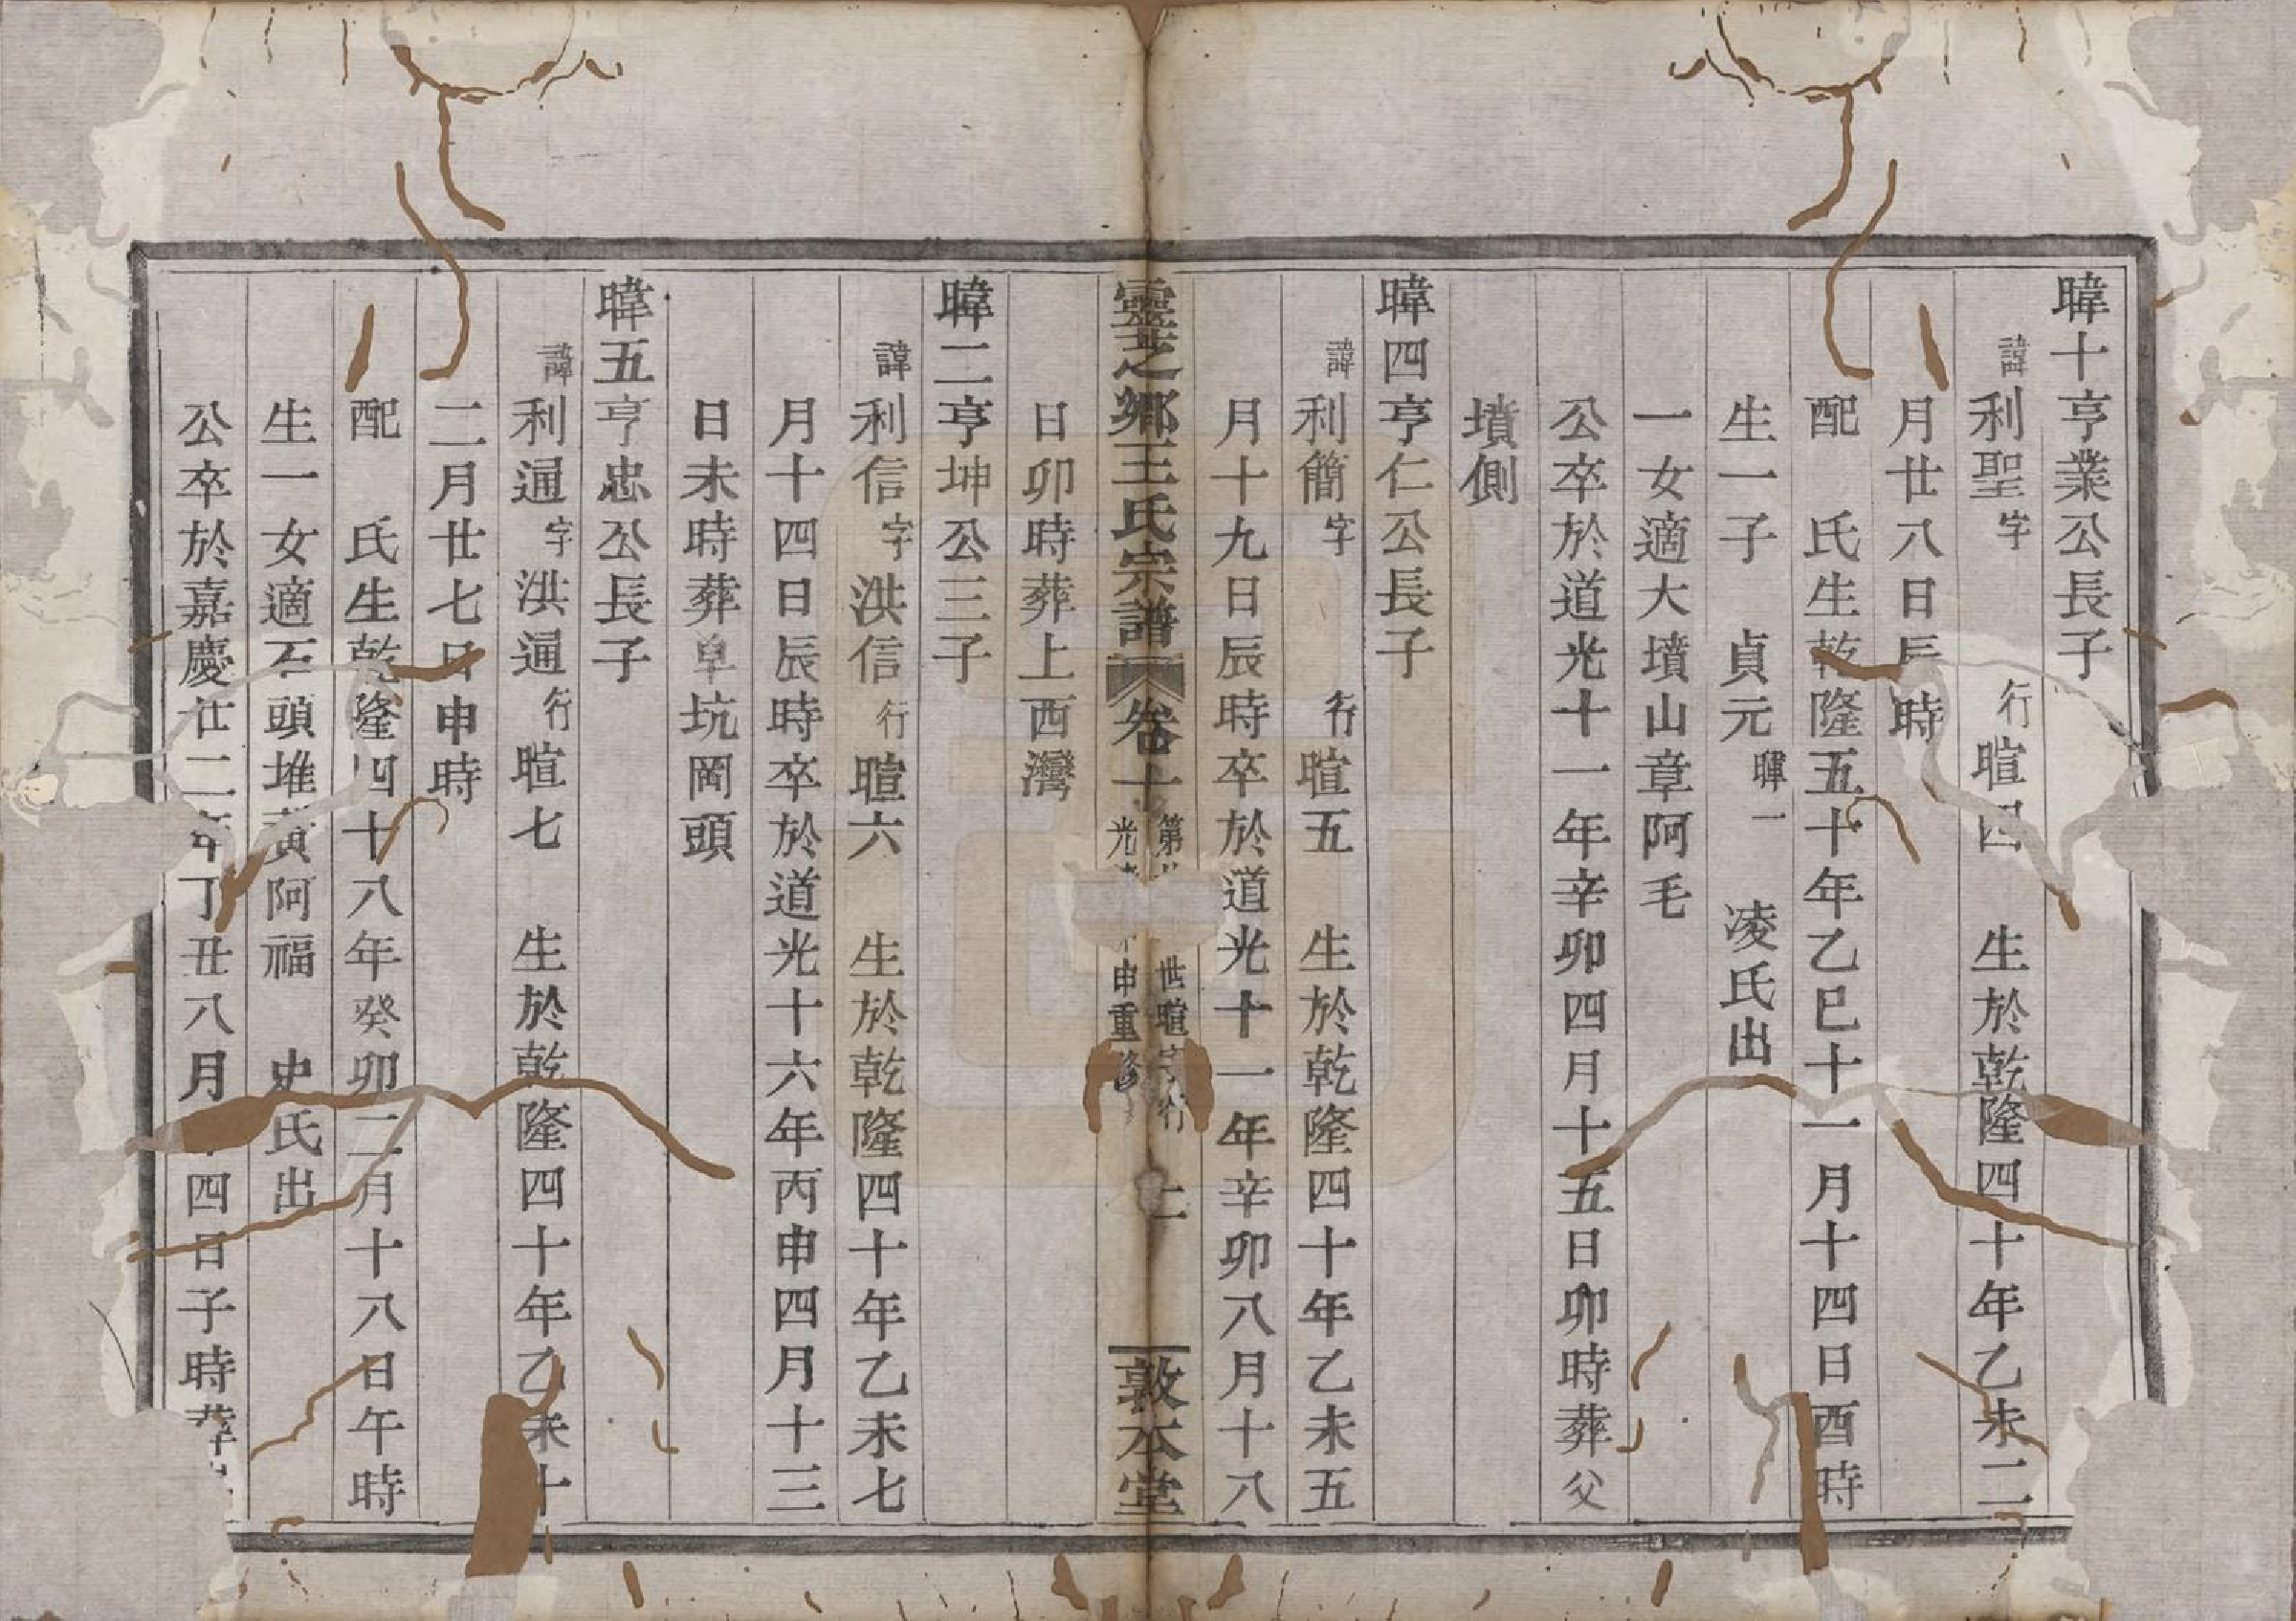 暐十亨業公長子
諱利聖字 行暄四 生於乾隆四十年乙未二
月廿八日辰時
配 氏生乾隆五十年乙巳十一月十四日酉時
生一子 貞元暉一 凌氏出
一女適大墳山章阿毛
公卒於道光十一年辛卯四月十五日卯時葬父
墳側
暐四亨仁公長子
諱利簡字 行暄五 生於乾隆四十年乙未五
月十九日辰時卒於道光十一年辛卯八月十八
靈芝鄉王氏宗譜 卷十 第 世暄字行 光 申重修 二 敦本堂
日卯時葬上西灣
暐二亨坤公三子
諱利信字洪信行暄六 生於乾隆四十年乙未七
月十四日辰時卒於道光十六年丙申四月十三
日未時葬皁坑岡頭
暐五亨忠公長子
諱利通字洪通行暄七 生於乾隆四十年乙未十
二月廿七日申時
配 氏生乾隆四十八年癸卯二月十八日午時
生一女適石頭堆黃阿福 史氏出
公卒於嘉慶廿二年丁丑八月 四日子時葬